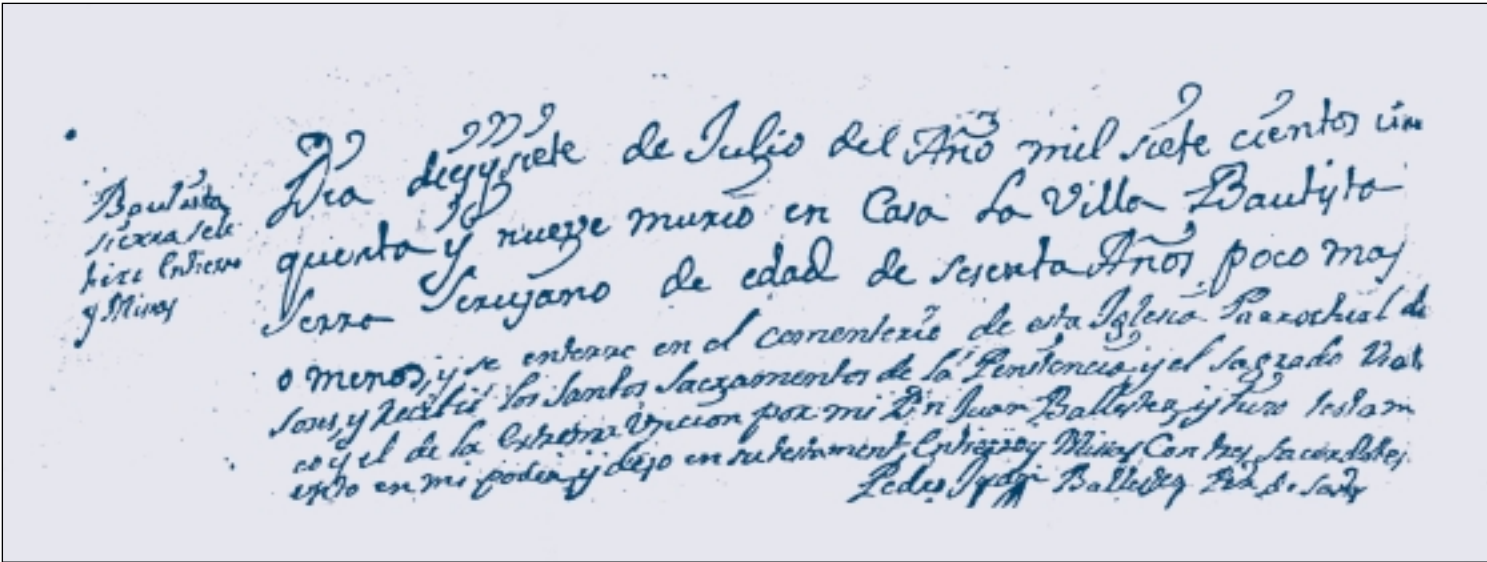 Bautista
sierra sele
hizo Entierro
y Misas
Dia diezysiete de Julio del Año mil siete cientos sin
quenta y nueve murió en Casa La Villa Bautista
Serra Serujano de edad de sesenta Años poco mas
o menos, y se enterro en el comenterio de esta Iglesia Parrochial de
y Recibió los Santos Sacramentos de la Penitencia, y el sagrado Viat
co y el de la Extrema Uncion por mi Dn Juan Ballester, y tuvo testam
ento en mi poder, y dejo en su testament, Entierro, y Misas Con tres sacerdotes
Pedro Juan Ballester de